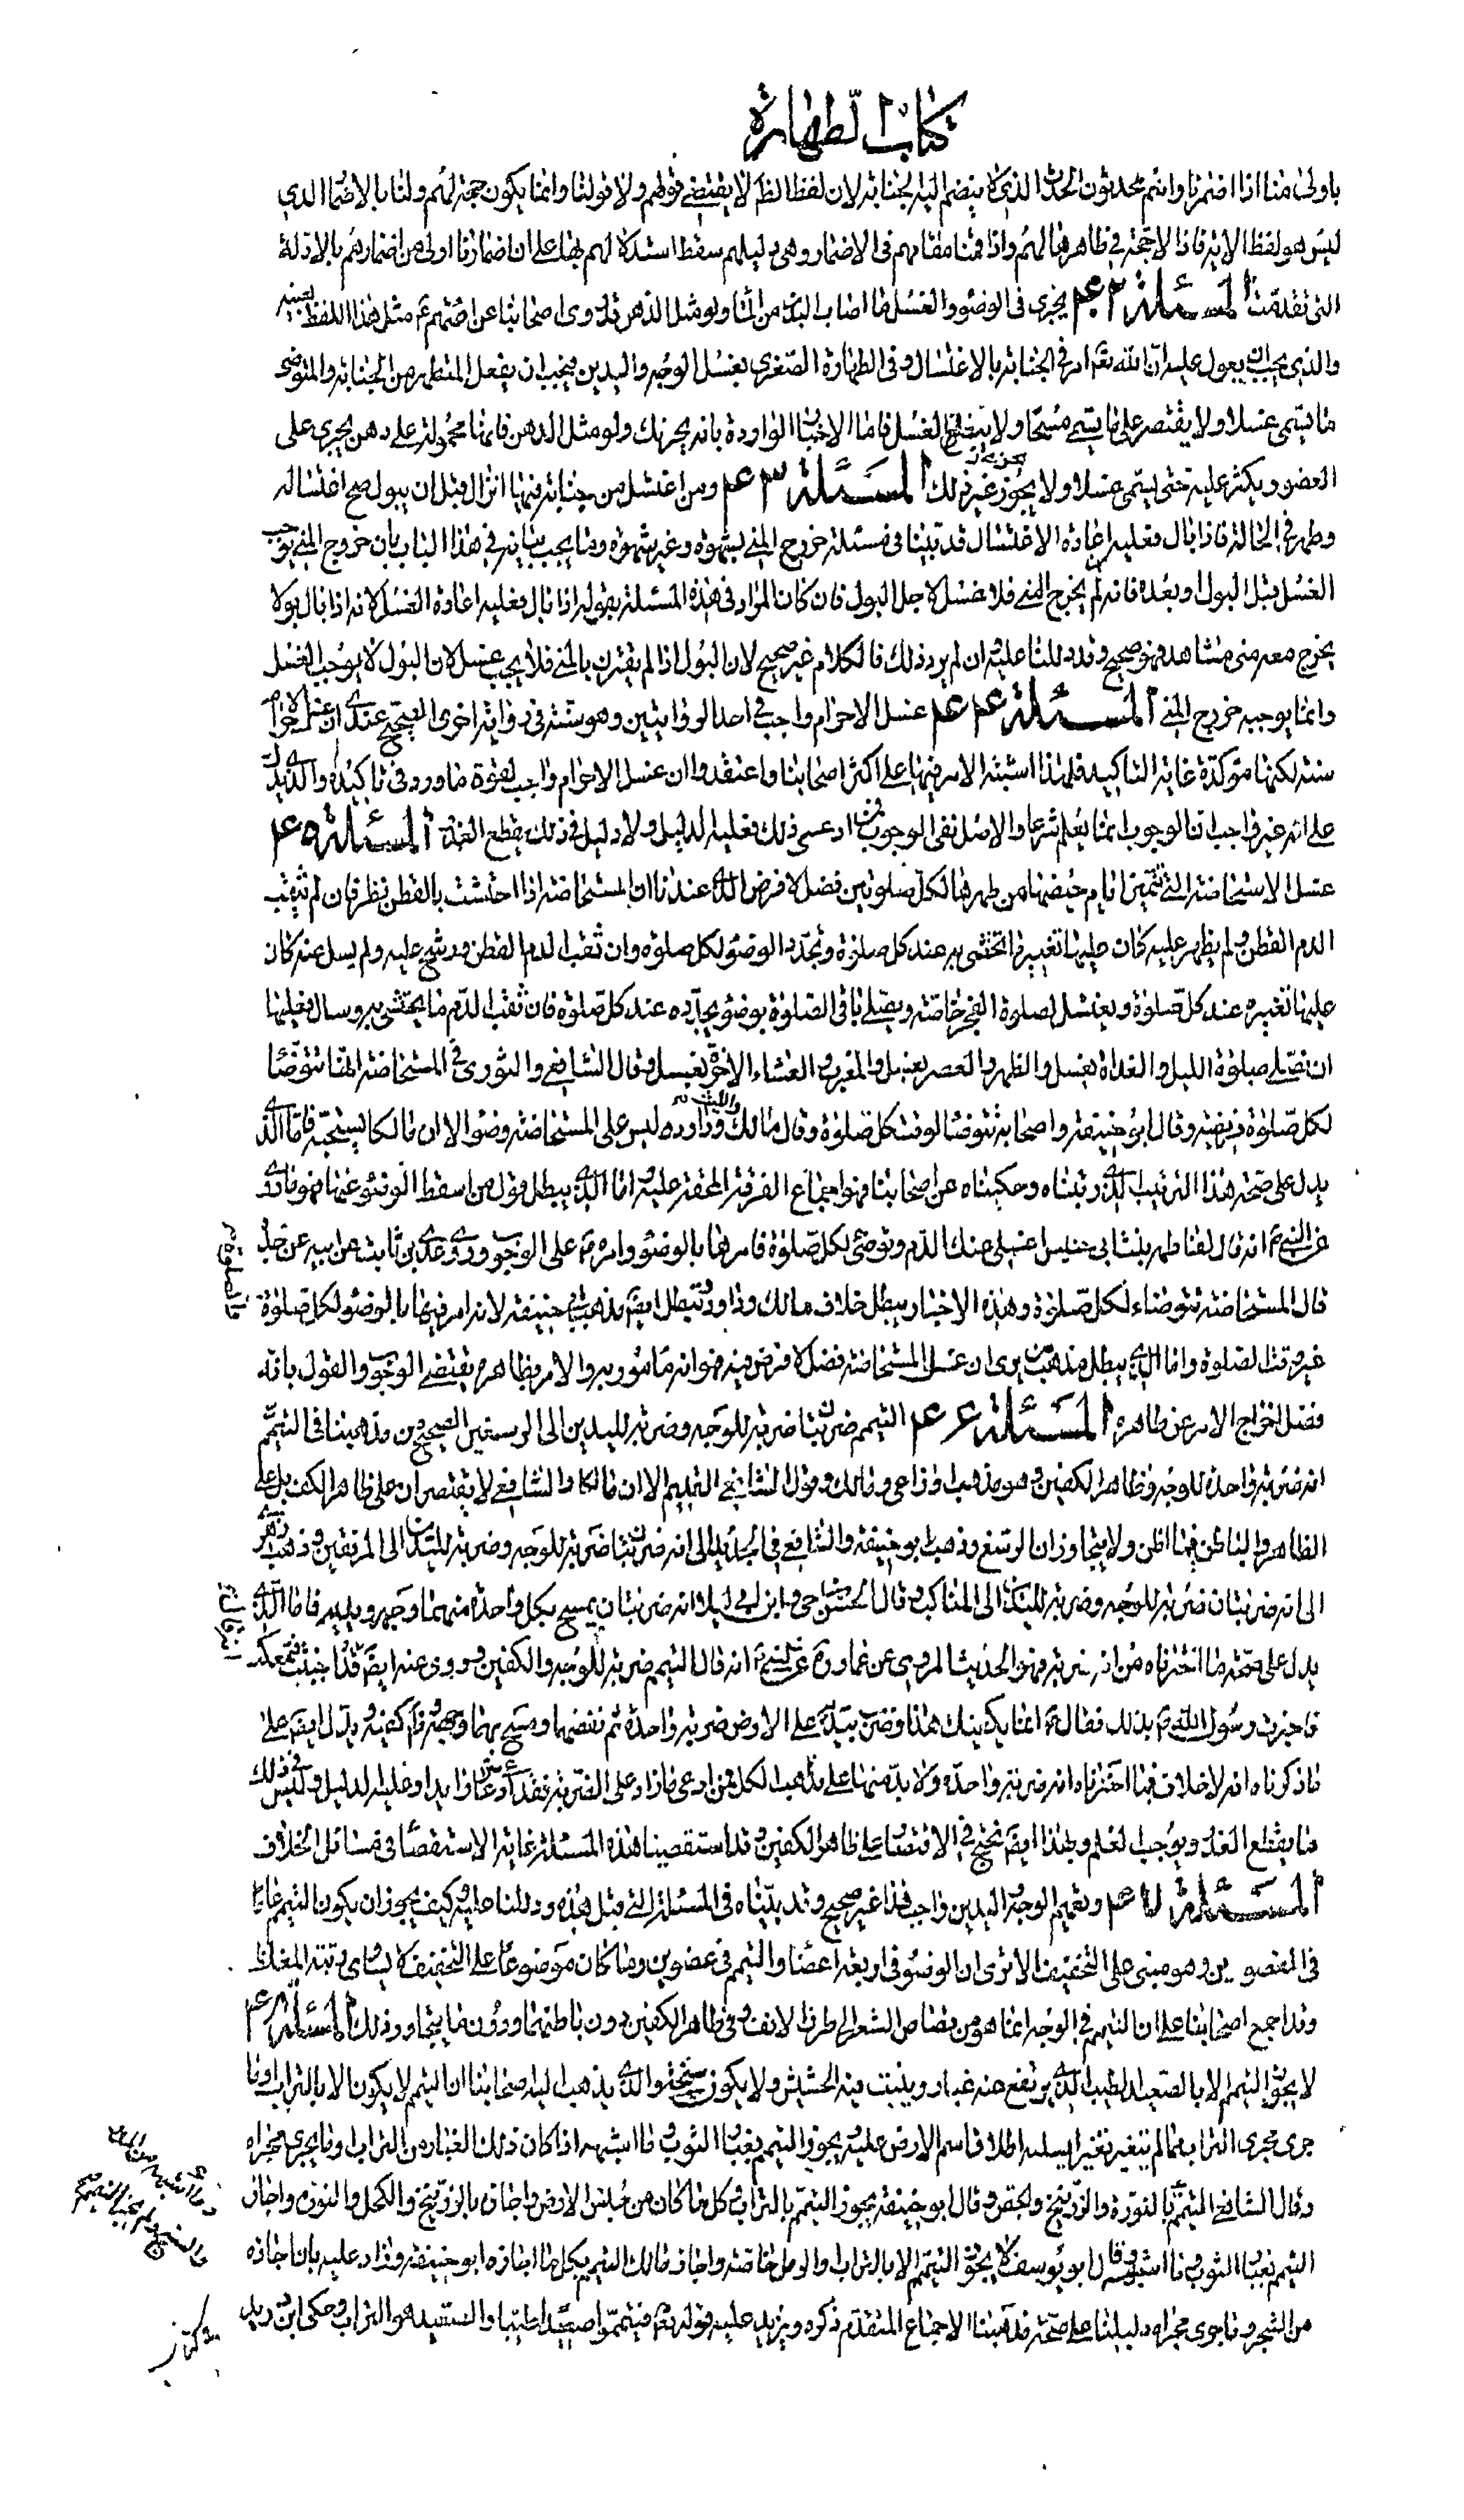 كتاب الطهارة
باولى منا اذا اضمرنا وانتم محدثون الحدث الذى لا ينضم اليه الجنابة لان لفظ الظم لا يقتضى قولهم ولا قولنا وانما يكون حجة لهم ولنا بالاضمار الذى
ليس هو لفظ الاية فاذا لا حجة فى ظاهرها لهم واذا قمنا مقامهم فى الاضمار وهى دليلهم سقط استدلالهم بها على ان اضمارنا اولى من اضمارهم بالادلة
التى تقدمت المسئلة ٤٢ يجزى فى الوضوء والغسل ما اصاب البدن من الماء ولو مثل الدهن قد روى اصحابنا عن ائمتهم ع مثل هذا اللفظ بعينه
والذى يجب ان يعول عليه ان الله تعم امر فى الجنابة بالاغتسال وفى الطهارة الصغرى بغسل الوجه واليدين فيجب ان يفعل المتطهر من الجنابة والمتوضى
ما يسمى غسلا ولا يقتصر على ما يسمى مسحا ولا يبلغ الغسل فاما الاخبار الواردة بانه يجزيك ولو مثل الدهن فانها محمولة على دهن يجرى على
العضو ويكثر عليه حتى يسمى غسلا ولا يجوز غير ذلك المسئلة ٤٣ ومن اغتسل من جنابة فيها انزال قبل ان يبول صح اغتساله
وطهر فى الحالة فاذا بال فعليه اعادة الاغتسال قد بينا فى مسئلة خروج المنى بشهوة وغير شهوة وما يجب بيانه فى هذا الباب بان خروج المنى يوجب
الغسل قبل البول او بعده فانه لم يخرج المنى فلا غسل لاجل البول فان كان المراد فى هذه المسئلة بقوله اذا بال فعليه اعادة الغسل لانه اذا بال بولا
يخرج معه منى مشاهد فهو صحيح وقد دللنا عليه وان لم يرد ذلك فالكلام غير صحيح لان البول اذا لم يقترن بالمنى فلا يجب غسل لان البول لا يوجب الغسل
وانما يوجبه خروج المنى المسئلة ٤٤ غسل الاحرام واجب فى احد الروايتين وهو سنة فى رواية اخرى الصحيح عندى ان غسل الاحرام
سنة لكنها مؤكدة غاية التاكيد فلهذا اشتبه الامر فيها على اكثر اصحابنا واعتقدوا ان غسل الاحرام واجب لقوة ما ورد فى تاكيده والذى يدل
على انه غير واجب ان الوجوب انما يعلم شرعا والاصل نفى الوجوب فمن ادعى ذلك فعليه الدليل ولا دليل فى ذلك يقطع العذر المسئلة ٤٥
غسل الاستحاضة التى تتميز ايام حيضها من طهرها لكل صلوتين فضل لا فرض الذى عندنا ان المستحاضة اذا احتشت بالقطن نظر فان لم يثقب
الدم القطن ولم يظهر عليه كان عليها تغيير ما تحتشى به عند كل صلوة وتجدد الوضوء لكل صلوة وان ثقب الدم القطن ورشح عليه ولم يسل عنه كان
عليها تغييره عند كل صلوة وتغتسل لصلوة الفجر خاصة وتصلى باقى الصلوة بوضوء تجدده عند كل صلوة فان ثقب الدم ما يحتشى به وسال فعليها
ان تصلى صلوة الليل والغداة بغسل والظهر والعصر بغسل والمغرب والعشاء الاخرة بغسل وقال الشافعى والثورى فى المستحاضة انها تتوضا
لكل صلوة فريضة وقال ابو حنيفة واصحابه تتوضا لوقت كل صلوة وقال مالك والليث وداود ليس على المستحاضة وضوء الا ان مالكا يستحبه فاما الذى
يدل على صحة هذا الترتيب الذى رتبناه وحكيناه عن اصحابنا فهو اجماع الفرقة المحقة عليه واما الذى يبطل قول من اسقط الوضوء عنها فهو ما روى
عن النبى ص انه قال لفاطمة بنت ابى حبيش اغسلى عنك الدم وتوضئى لكل صلوة فامرها بالوضوء وامره ع على الوجوب وروى عدى بن ثابت عن ابيه عن جده
قال المستحاضة تتوضاء لكل صلوة وهذه الاخبار يبطل خلاف مالك وداود وتبطل ايضا مذهب ابى حنيفة لانه امر فيها بالوضوء لكل صلوة
غير وقت الصلوة واما الذى يبطل مذهب من يرى ان غسل المستحاضة فضل لا فرض فيه فهو انه مامور به والامر بظاهره يقتضى الوجوب والقول بانه
فضل اخراج الامر عن ظاهره المسئلة ٤٦ التيمم ضربتان ضربة للوجه وضربة لليدين الى الرسغين الصحيح من مذهبنا فى التيمم
انه ضربة واحدة للوجه وظاهر الكفين وهو مذهب الاوزاعى ومالك وقول الشافعى القديم الا ان مالكا والشافعى لا يقتصران على ظاهر الكف بل على
الظاهر والباطن فيما اظن ولا يتجاوزان الرسغ وذهب ابو حنيفة والشافعى فى الجديد الى انه ضربتان ضربة للوجه وضربة لليدين الى المرفقين وذهب الزهرى
الى انه ضربتان ضربة للوجه وضربة لليدين الى المناكب وقال الحسن بن حى وابن ابى ليلى انه ضربتان يمسح بكل واحدة منهما وجهه ويديه فاما الذى
يدل على صحة ما اخترناه من انه ضربة فهو الحديث المروى عن عمار ره عن النبى ص انه قال التيمم ضربة للوجه والكفين وروى عنه ايضا قد اجنبت فتمعكت
فاخبرت رسول الله ص بذلك فقال ص انما يكفيك هذا وضرب بيديه على الارض ضربة واحدة ثم نفضهما ومسح بهما وجهه وظاهر كفيه ويدل ايضا على
ما ذكرناه انه لا خلاف فيما اخترناه انه ضربة واحدة ولا بد منها على مذهب الكل فمن ادعى ما زاد على الضربة فقد ادعى شرعا زايدا وعليه الدليل وليس فى ذلك
ما يقطع العذر ويوجب العلم وبهذا ايضا نحتج فى الاقتصار على ظاهر الكفين وقد استقصينا هذه المسئلة غاية الاستقصاء فى مسائل الخلاف
المسئلة ٤٧ وتعميم الوجه واليدين واجب هذا غير صحيح وقد بيناه فى المسئلة التى قبل هذه ودللنا عليه وكيف يجوز ان يكون التيمم عاما
فى العضوين وهو مبنى على التخفيف الا ترى ان الوضوء فى اربعة اعضاء والتيمم فى عضوين وما كان موضوعا على التخفيف لا يساوى رتبة المغلظ
وقد اجمع اصحابنا على ان التيمم فى الوجه انما هو من قصاص الشعر الى طرف الانف وفى ظاهر الكفين دون باطنهما ودون ما يتجاوز ذلك المسئلة ٤٨
لا يجوز التيمم الا بالصعيد الطيب الذى يرتفع منه غبار وينبت فيه الحشيش ولا يكون سبخة والذى يذهب اليه اصحابنا ان التيمم لا يكون الا بالتراب او ما
جرى مجرى التراب مما لم يتغير تغيرا يسلبه اطلاق اسم الارض عليه ويجوز التيمم بغبار الثوب وما اشبهه اذا كان ذلك الغبار من التراب او ما يجرى مجراه
وقال الشافعى التيمم بالنورة والزرنيخ والجص وقال ابو حنيفة يجوز التيمم بالتراب وكل ما كان من جنس الارض واجاز بالزرنيخ والكحل والنورة واجاز
التيمم بغبار الثوب وما اشبهه وقال ابو يوسف لا يجوز التيمم الا بالتراب والرمل خاصة واجاز مالك التيمم بكل ما اجازه ابو حنيفة وزاد عليه بان اجازه
من الشجر وما جرى مجراه دليلنا على صحة مذهبنا الاجماع المتقدم ذكره ويزيد عليه قوله تعم فتيمموا صعيدا طيبا والصعيد هو التراب وحكى ابن دريد